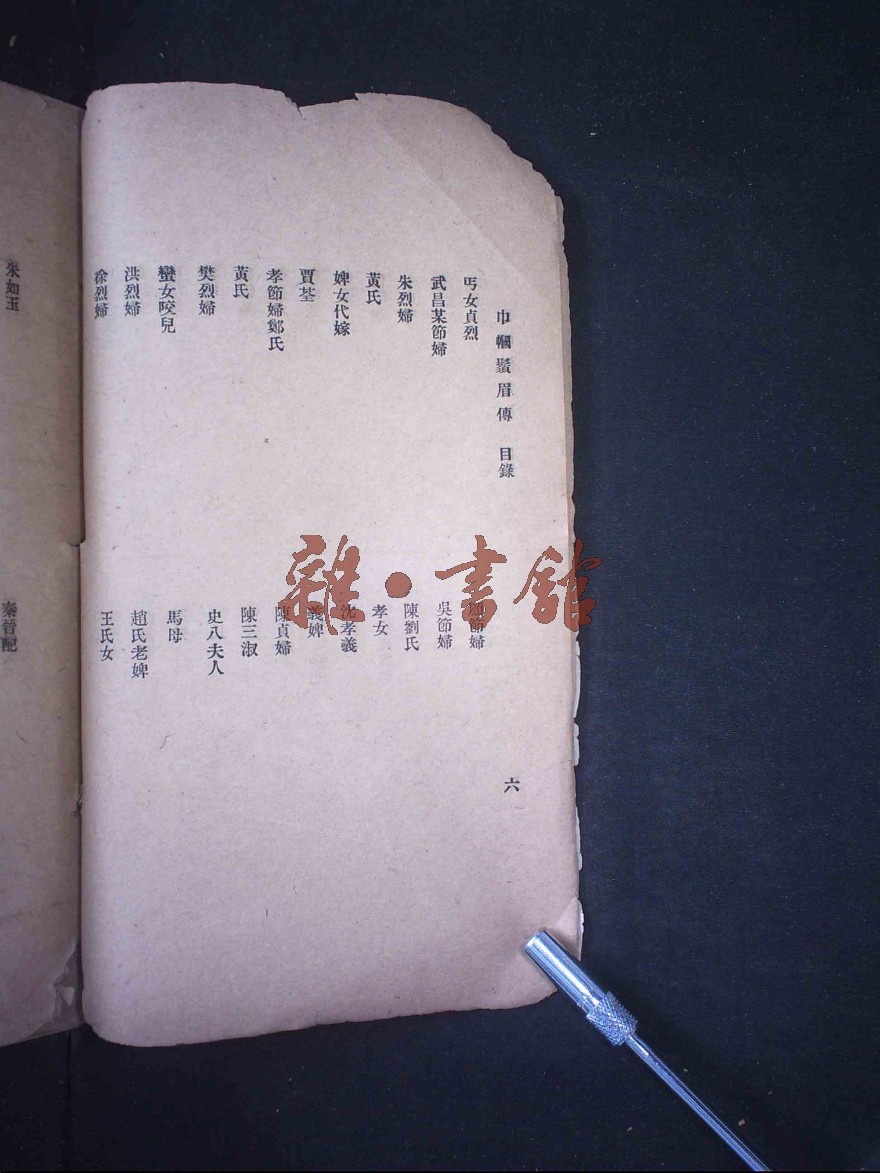 巾幗鬚眉傳 目錄
六
丐女貞烈
節婦
武昌某節婦
吳節婦
朱烈婦
陳劉氏
黃氏
孝女
婢女代嫁
沈孝義
賈荃
義婢
孝節婦鄭氏
陳貞婦
黃氏
陳三淑
樊烈婦
史八夫人
蠻女咬兒
馬母
洪烈婦
趙氏老婢
徐烈婦
王氏女
朱如玉
秦晉配
雜·書館